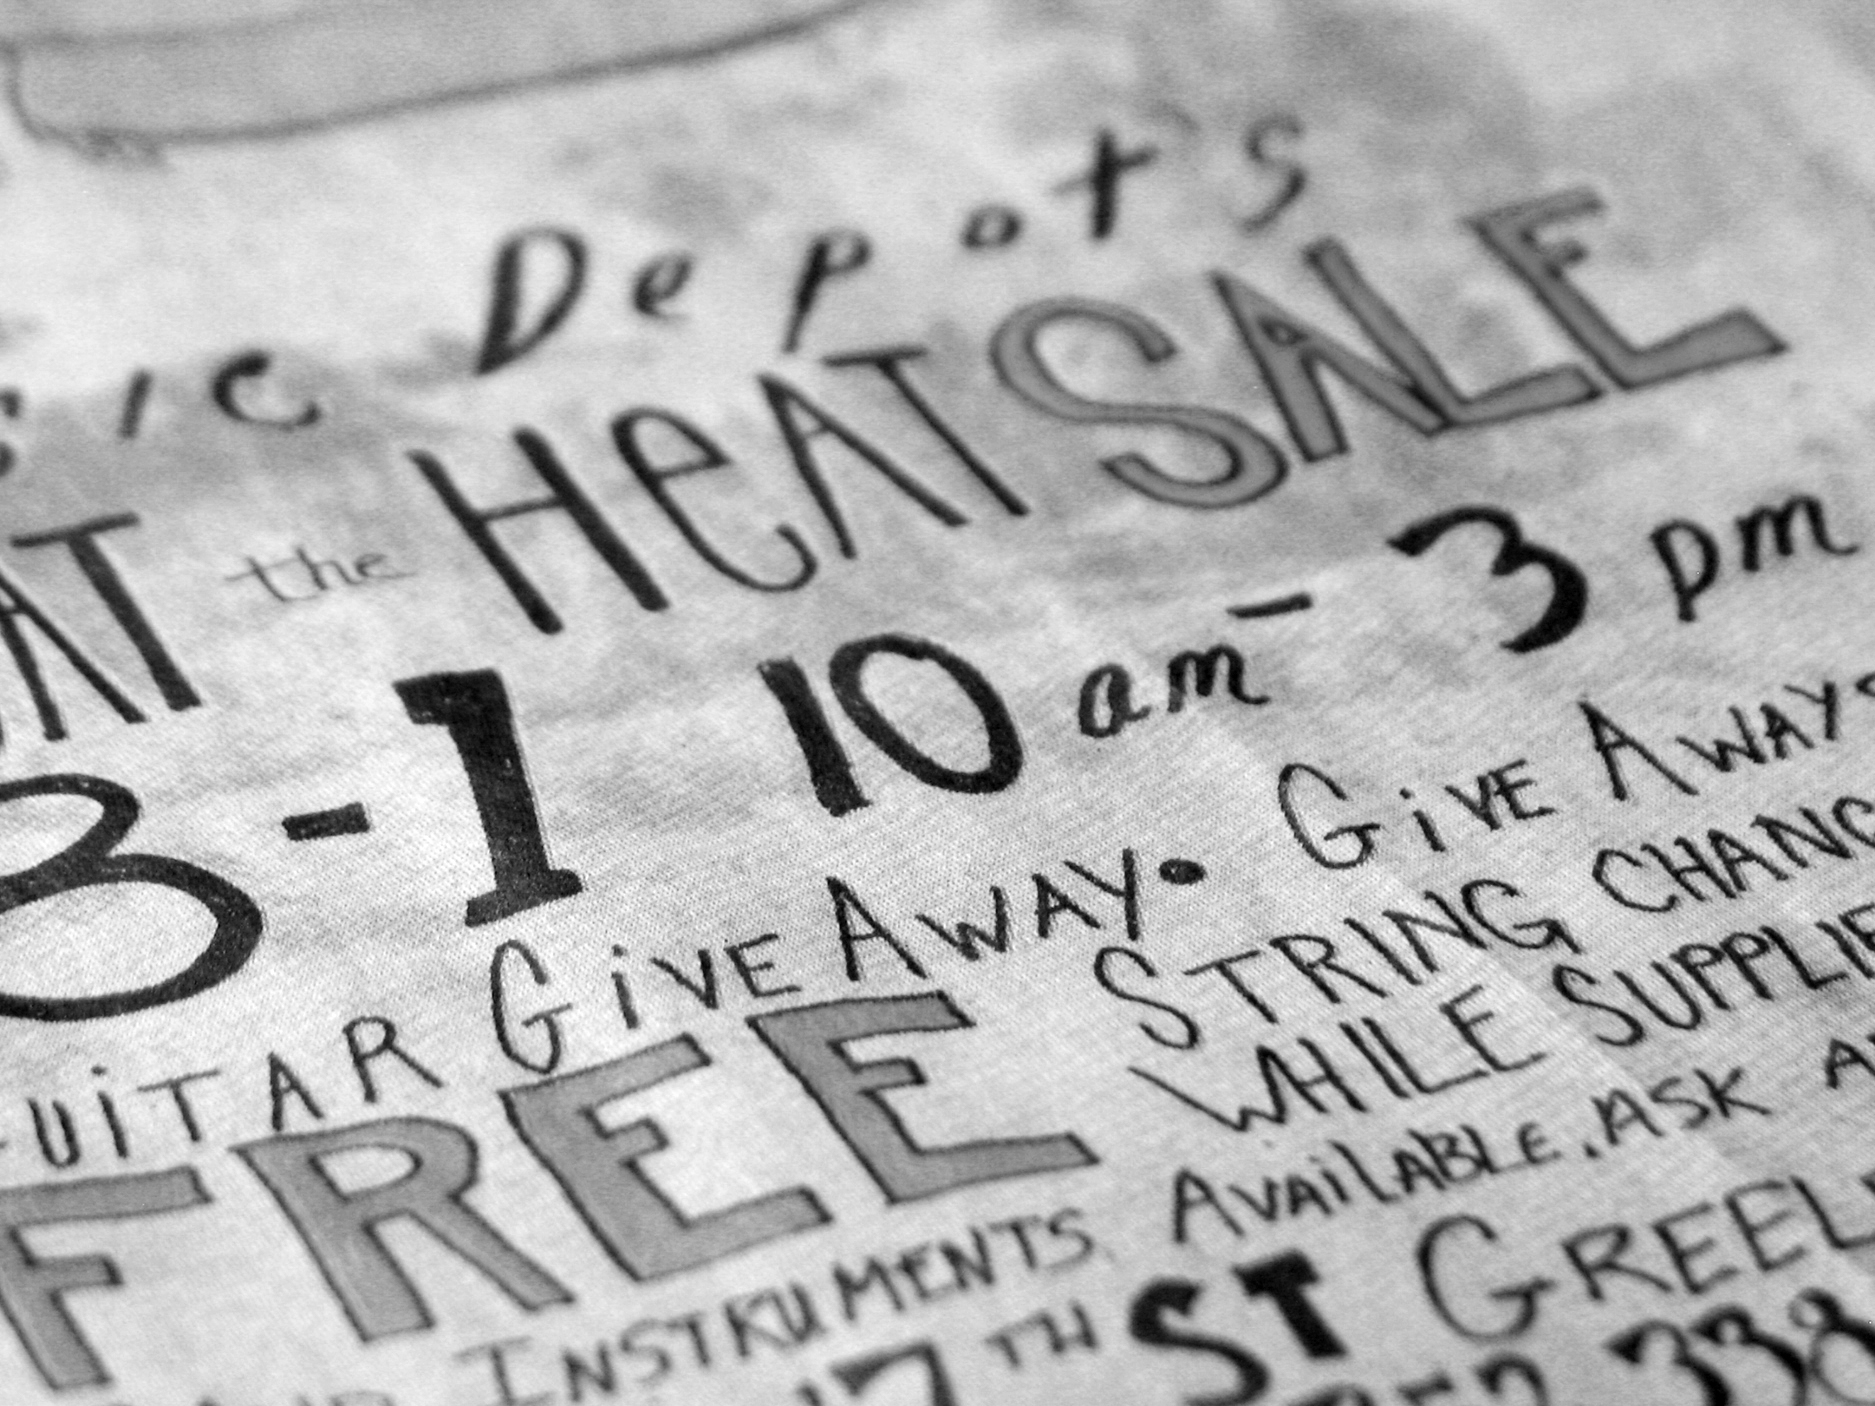 sic Depot's
AT the HEAT SALE
8-1 10 am - 3 pm
UITAR GiVE AWAY • GiVE AWAY
FREE STRING CHANG
WHILE SUPPLIE
INSTRUMENTS AVAilABLE. ASK A
17TH ST GREEL
338